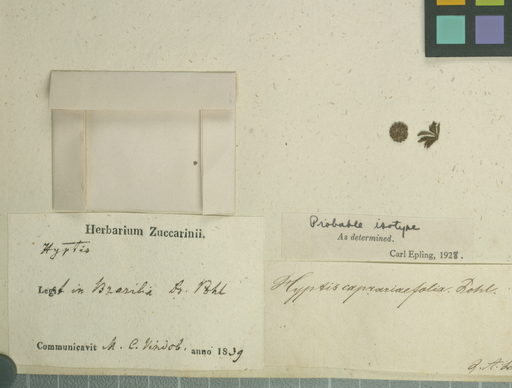 Herbarium Zuccarinii.
Hyptis
Legit in Brasilia Dr. Pohl
Communicavit M. C. Vindob. anno 1839
Probable isotype
As determined.
Carl Epling, 1928.
Hyptis caprariaefolia. Pohl.